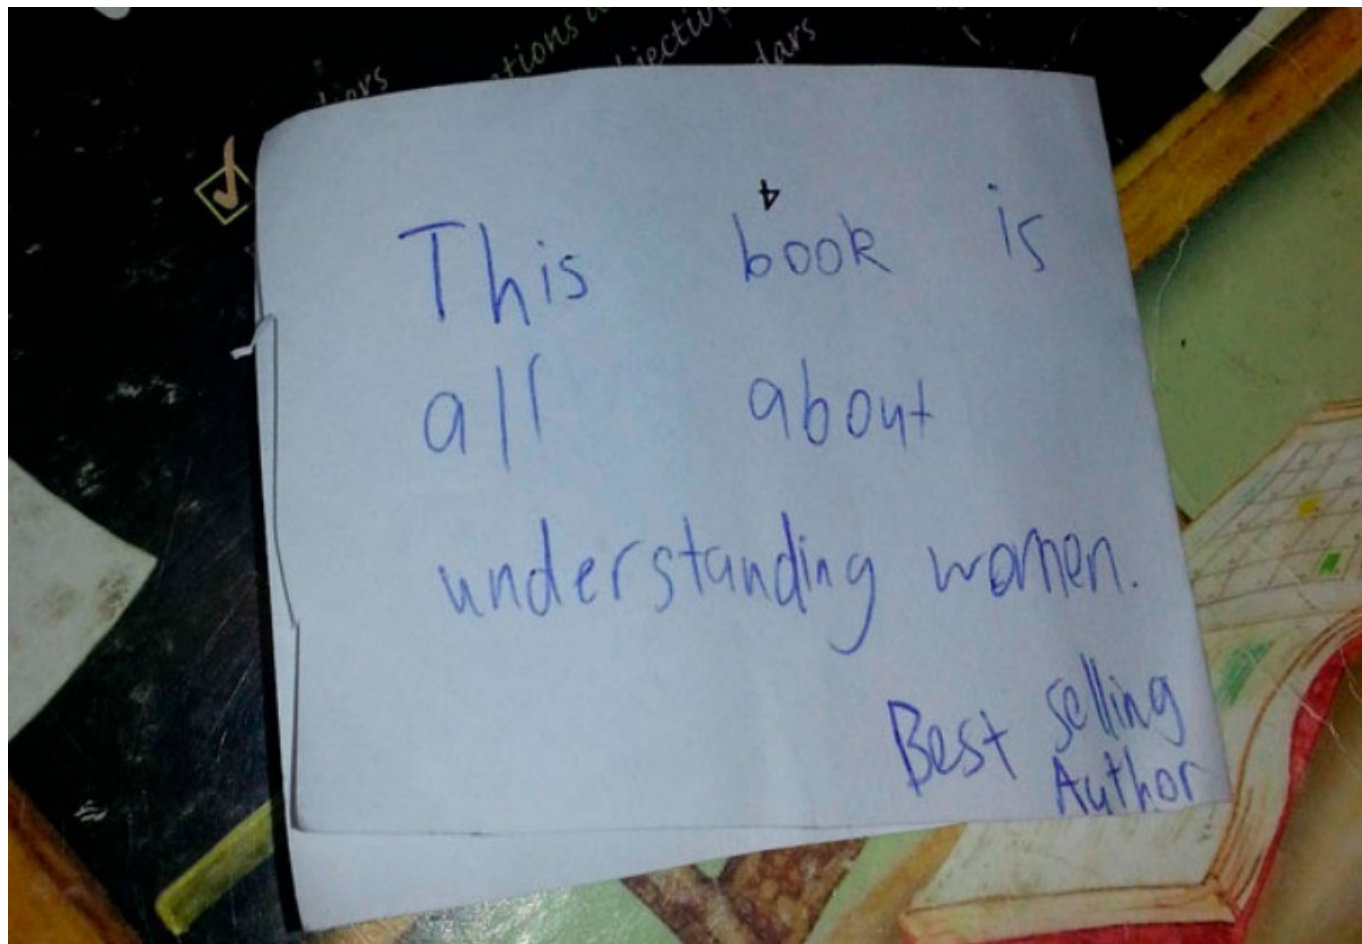 4
This book is
all about
understanding women.
Best selling
Author